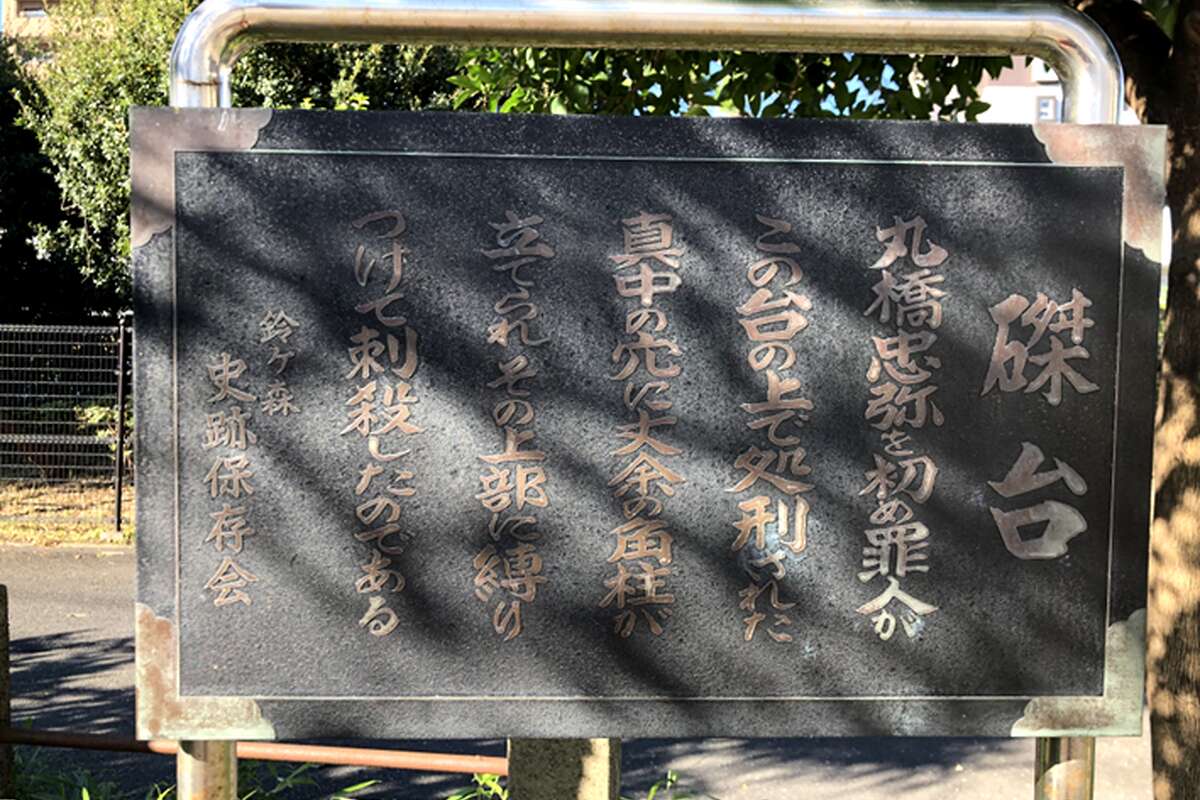 磔台
丸橋忠弥を初め罪人が
この台の上で処刑された
真中の穴に丈余の角柱が
立てられその上部に縛り
つけて刺殺したのである
鈴ヶ森
史跡保存会